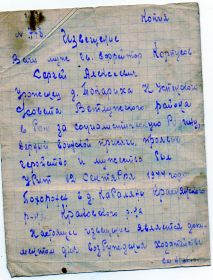 Копия
Извещение
Ваш муж гв. ефрейтор Корпусов
Сергей Алексеевич
Уроженец д. Мондариха Н Устинский
с/совета Ветлужского района
в бою за социалистическую Родину,
верный воинской присяге, проявив
геройство и мужество был
убит 19 Сентября 1944 года
Похоронен в д.
р-н
Настоящее извещение является доку-
ментом для возбуждения ходатайства